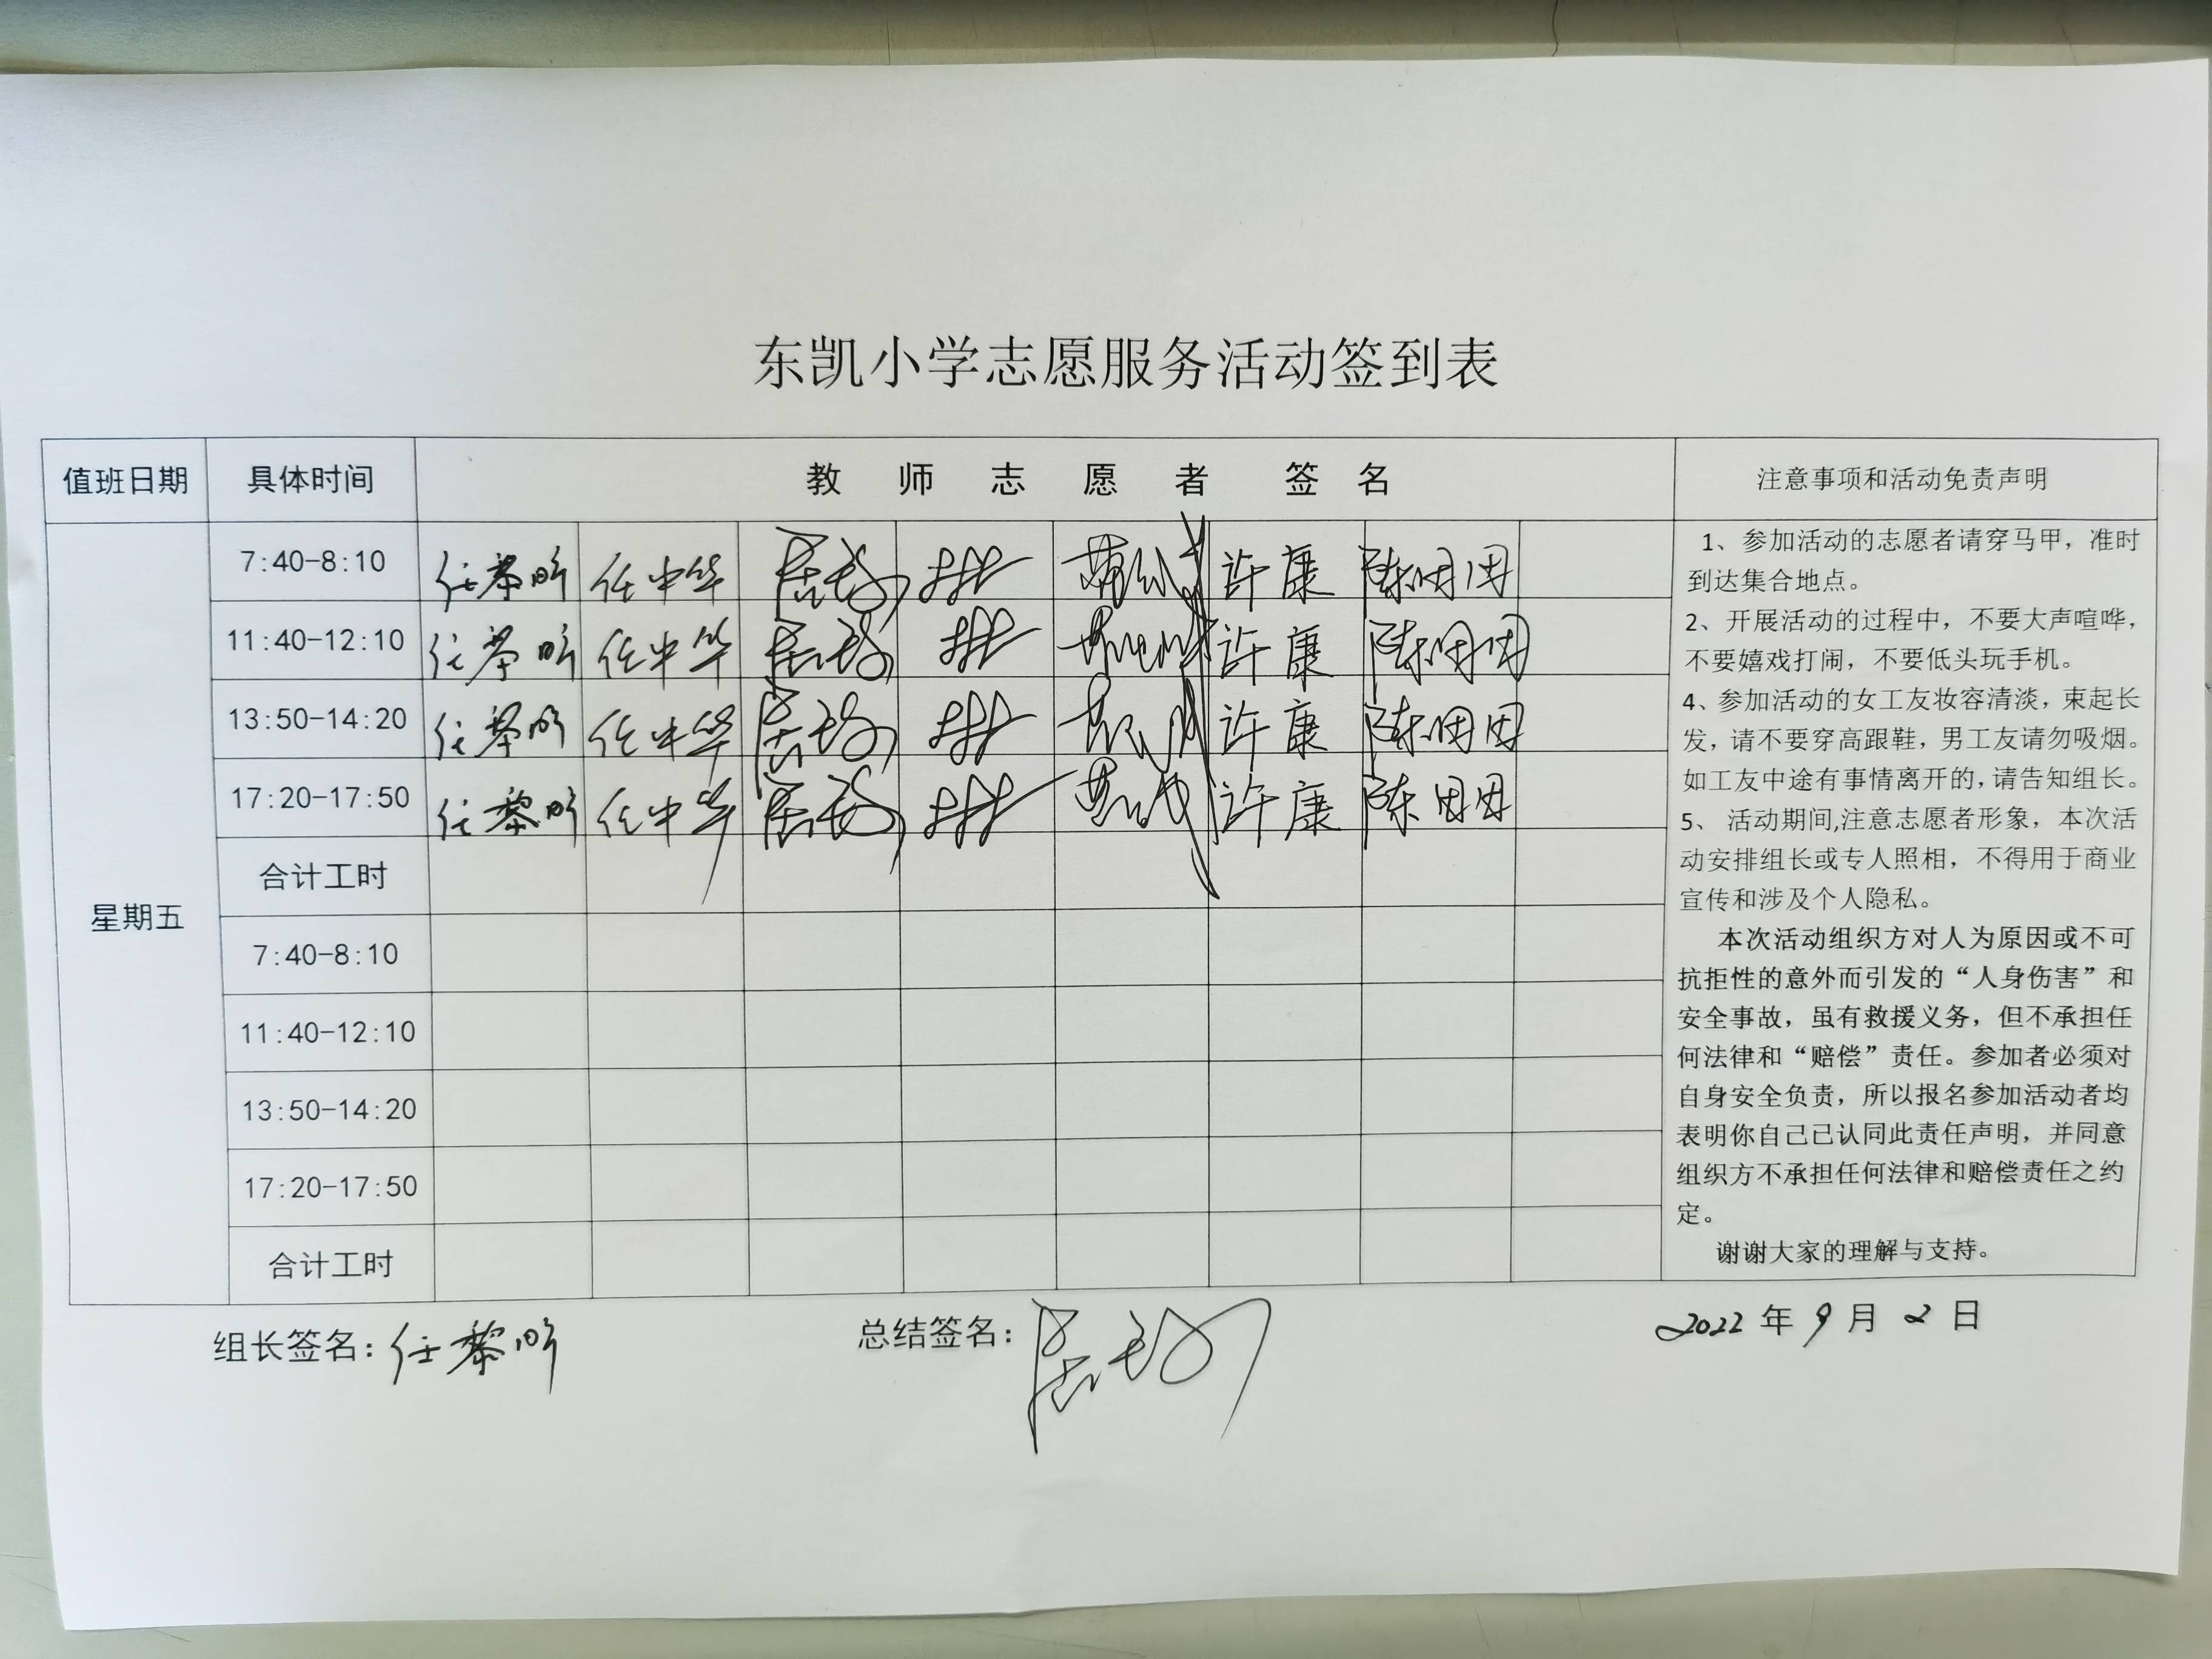 东凯小学志愿服务活动签到表
值班日期 具体时间 教师志愿者签名 注意事项和活动免责声明
星期五
7:40-8:10 任黎昕 任中华 许康 陈团团
11:40-12:10 任黎昕 任中华 许康 陈团团
13:50-14:20 任黎昕 任中华 许康 陈团团
17:20-17:50 任黎昕 任中华 许康 陈团团
合计工时
7:40-8:10
11:40-12:10
13:50-14:20
17:20-17:50
合计工时
1、参加活动的志愿者请穿马甲，准时
到达集合地点。
2、开展活动的过程中，不要大声喧哗，
不要嬉戏打闹，不要低头玩手机。
4、参加活动的女工友妆容清淡，束起长
发，请不要穿高跟鞋，男工友请勿吸烟。
如工友中途有事情离开的，请告知组长。
5、 活动期间,注意志愿者形象，本次活
动安排组长或专人照相，不得用于商业
宣传和涉及个人隐私。
本次活动组织方对人为原因或不可
抗拒性的意外而引发的“人身伤害”和
安全事故，虽有救援义务，但不承担任
何法律和“赔偿”责任。参加者必须对
自身安全负责，所以报名参加活动者均
表明你自己己认同此责任声明，并同意
组织方不承担任何法律和赔偿责任之约
定。
谢谢大家的理解与支持。
组长签名：任黎昕 总结签名： 2022年9月2日